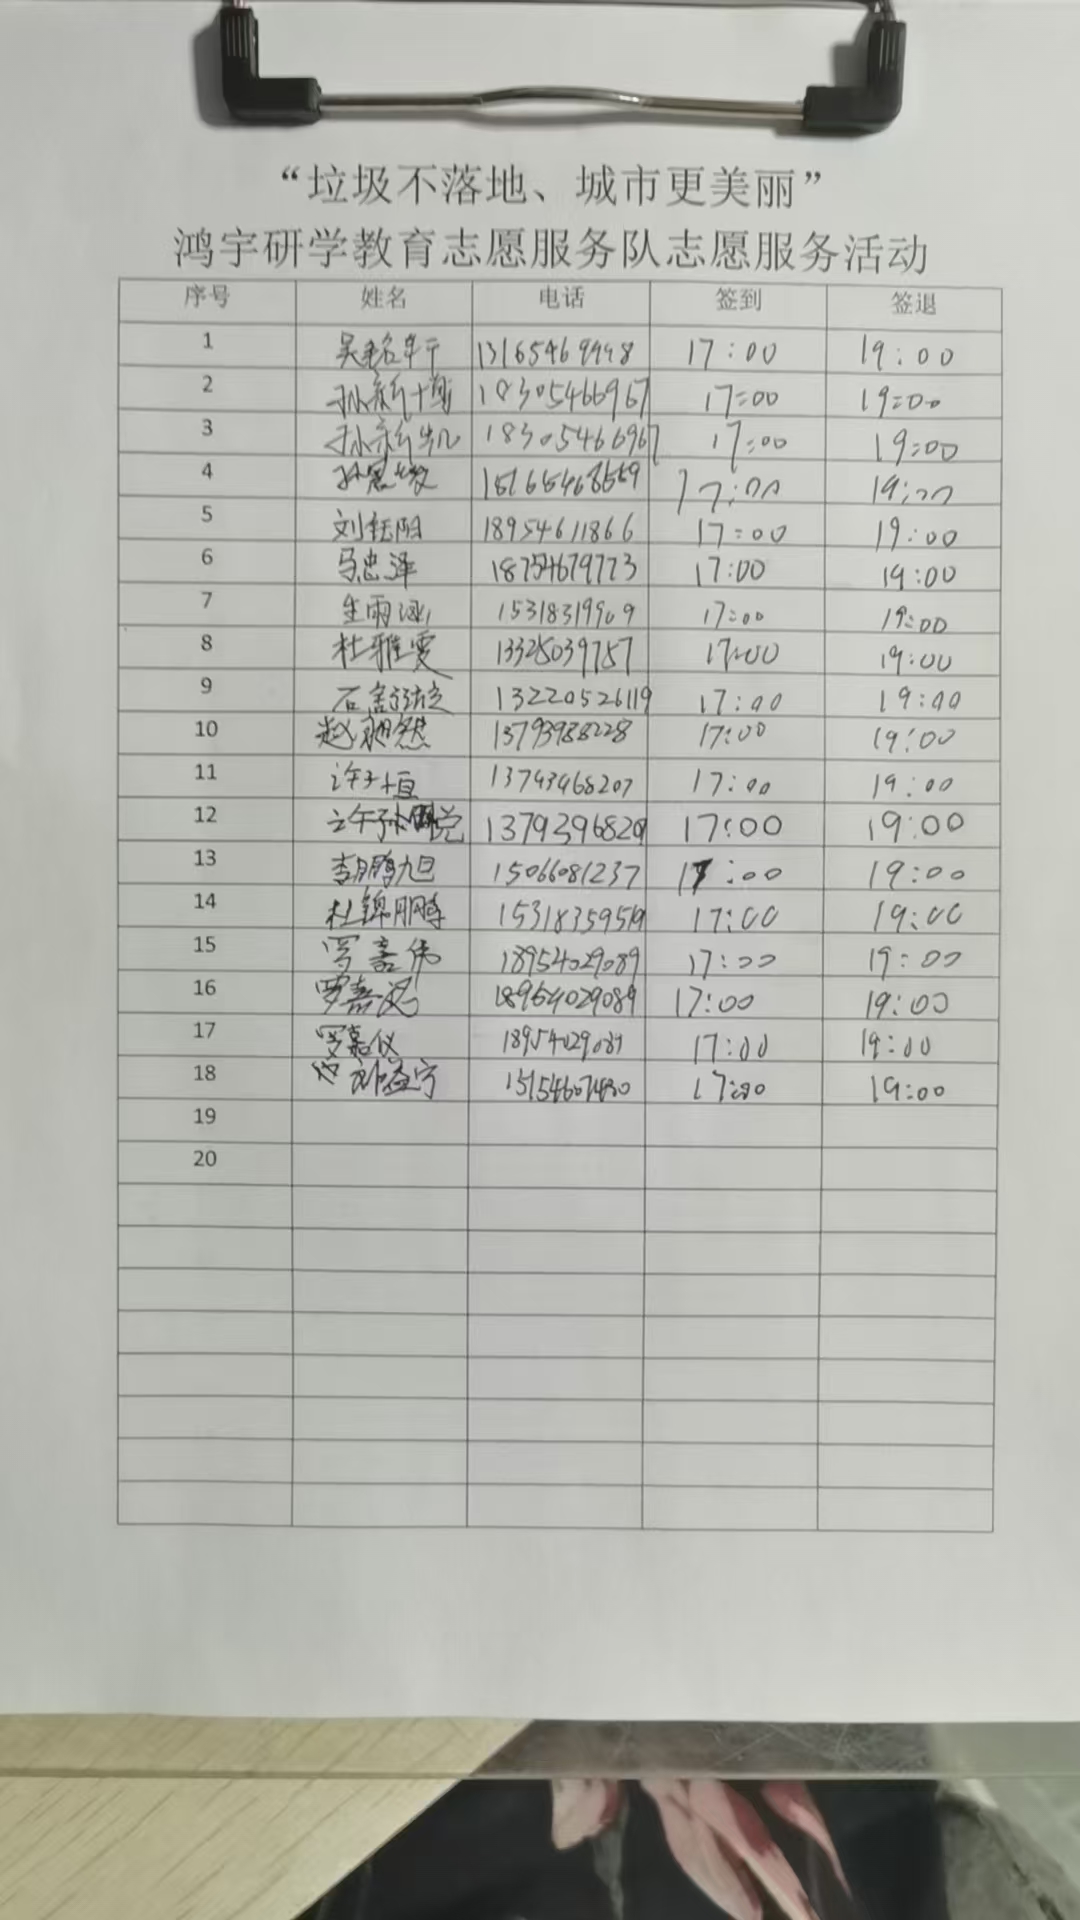 “垃圾不落地、城市更美丽”
鸿宇研学教育志愿服务队志愿服务活动
序号 姓名 电话 签到 签退
1 17:00 19:00
2 18305466967 17:00 19:00
3 18305466967 17:00 19:00
4 17:00 19:00
5 18954611866 17:00 19:00
6 马忠泽 18754679773 17:00 19:00
7 15318319909 17:00 19:00
8 杜雅雯 13325039757 17:00 19:00
9 13220526119 17:00 19:00
10 13793988228 17:00 19:00
11 许子恒 13793968207 17:00 19:00
12 17:00 19:00
13 李鹏旭 15066081237 17:00 19:00
14 杜锦鹏 15318359519 17:00 19:00
15 罗嘉伟 18954029089 17:00 19:00
16 18954029089 17:00 19:00
17 罗嘉仪 18954029089 17:00 19:00
18 17:00 19:00
19
20